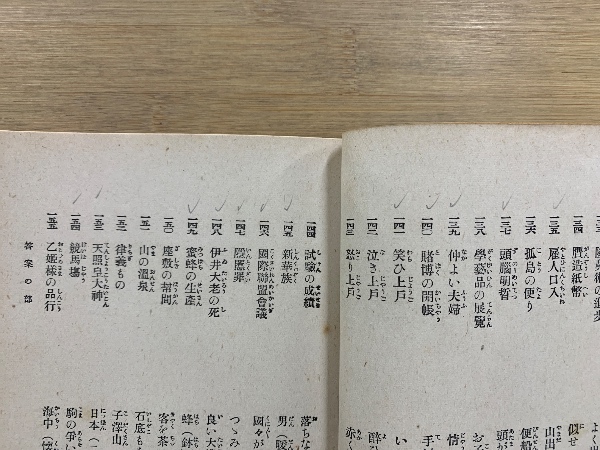 一三四 贋造紙幣
一三五 雇人口入
一三六 孤島の便り
一三七 頭腦明晳
一三八 學藝品の展覽
一三九 仲よい夫婦
一四〇 賭博の開帳
一四一 笑ひ上戸
一四二 泣き上戸
一四三 怒り上戸
一四四 試驗の成績
一四五 新華族
一四六 國際聯盟會議
一四七 隱匿罪
一四八 伊井大老の死
一四九 蜜蜂の生產
一五〇 座敷の幇間
一五一 山の溫泉
一五二 律義もの
一五三 天照皇大神
一五四 競馬場
一五五 乙姬樣の品行
答案の部
よく
似せ
山出
便船
頭が
お
情
手
い
醉
赤く
落ちな
男(暖
國々が
つゝみ
良い大
蜂(鉢
客を茶
石底も
子澤山
日本(二
駒の爭い
海中(懷